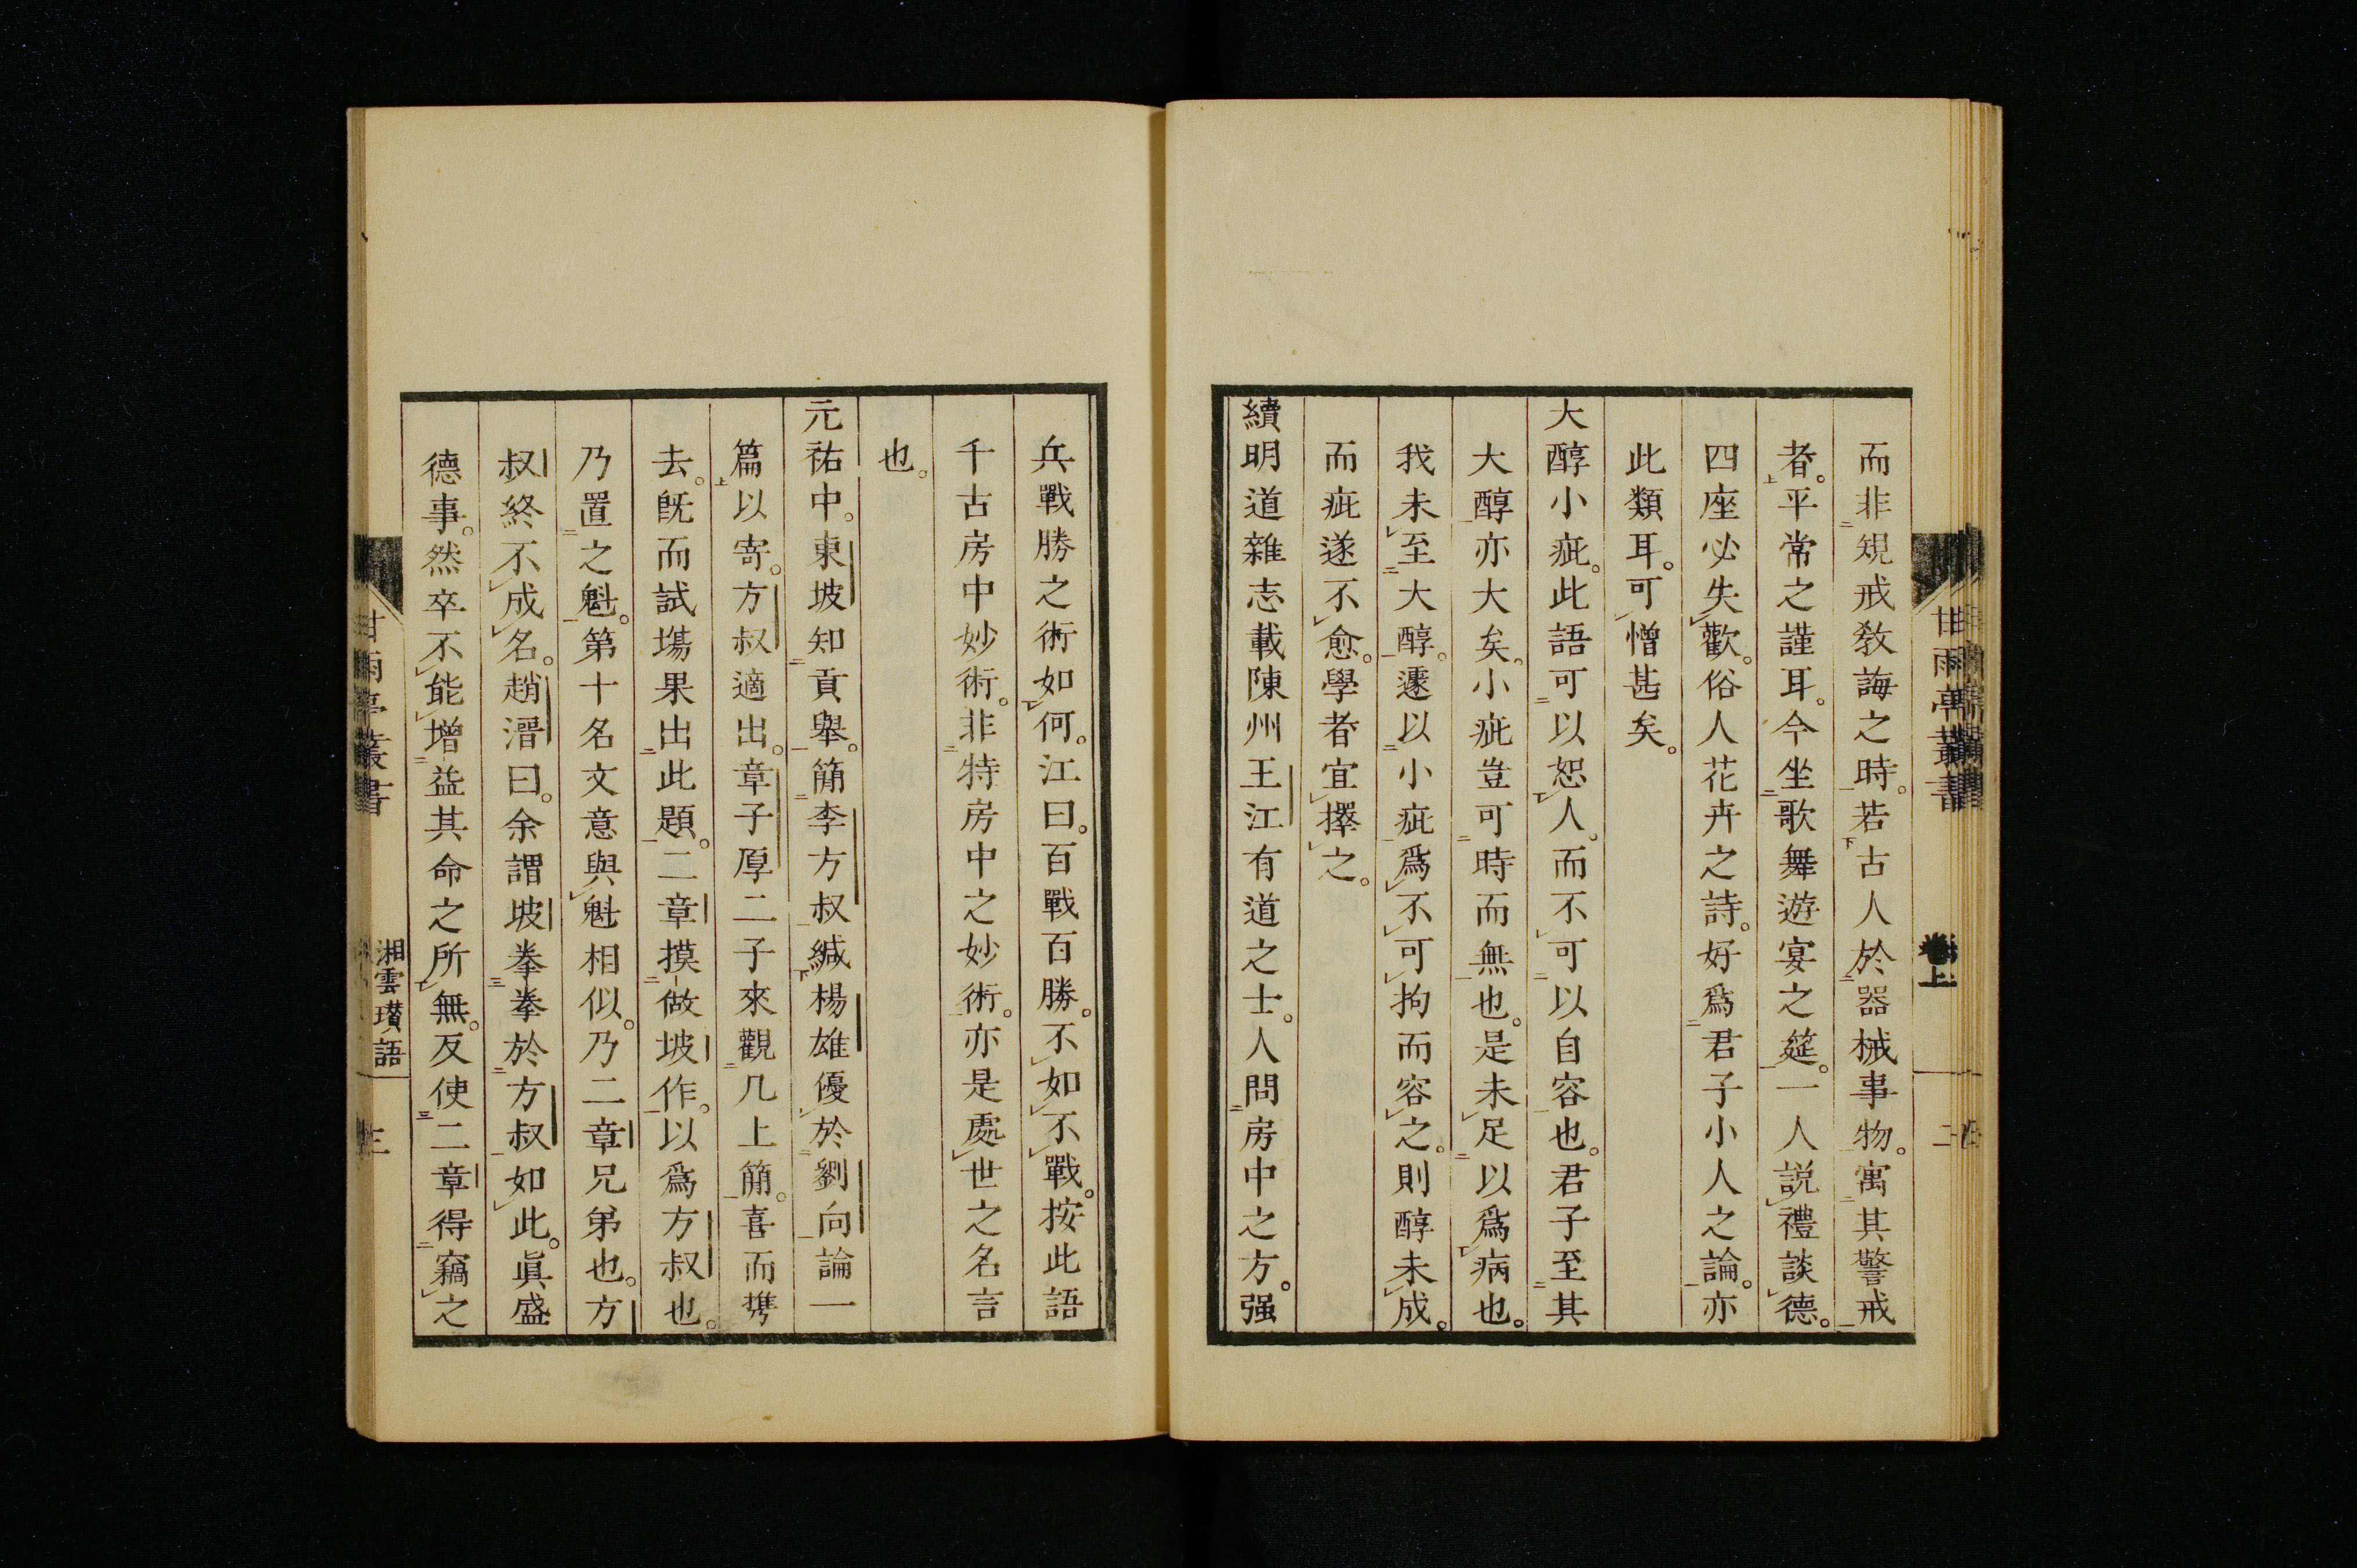 而非規戒教誨之時。若古人於器械事物。寓其警戒
者。平常之謹耳。今坐歌舞遊宴之筵。一人説禮談德。
四座必失歡。俗人花卉之詩。好爲君子小人之論。亦
此類耳。可憎甚矣。
大醇小疵。此語可以恕人。而不可以自容也。君子至其
大醇亦大矣。小疵豈可時而無也。是未足以爲病也。
我未至大醇。遽以小疵爲不可拘而容之。則醇未成。
而疵遂不愈。學者宜擇之。
續明道雜志載陳州王江有道之士。人問房中之方。强
甘雨亭叢書
卷上
二
兵戰勝之術如何。江曰。百戰百勝。不如不戰。按此語
千古房中妙術。非特房中之妙術。亦是處世之名言
也。
元祐中。東坡知貢舉。簡李方叔緘楊雄優於劉向論一
篇以寄。方叔適出。章子厚二子來觀几上簡。喜而攜
去。既而試塲果出此題。二章摸倣坡作。以爲方叔也。
乃置之魁。第十名文意與魁相似。乃二章兄弟也。方
叔終不成名。趙溍曰。余謂坡拳拳於方叔如此。眞盛
德事。然卒不能增益其命之所無。反使二章得竊之
甘雨亭叢書
湘雲瓚語
三